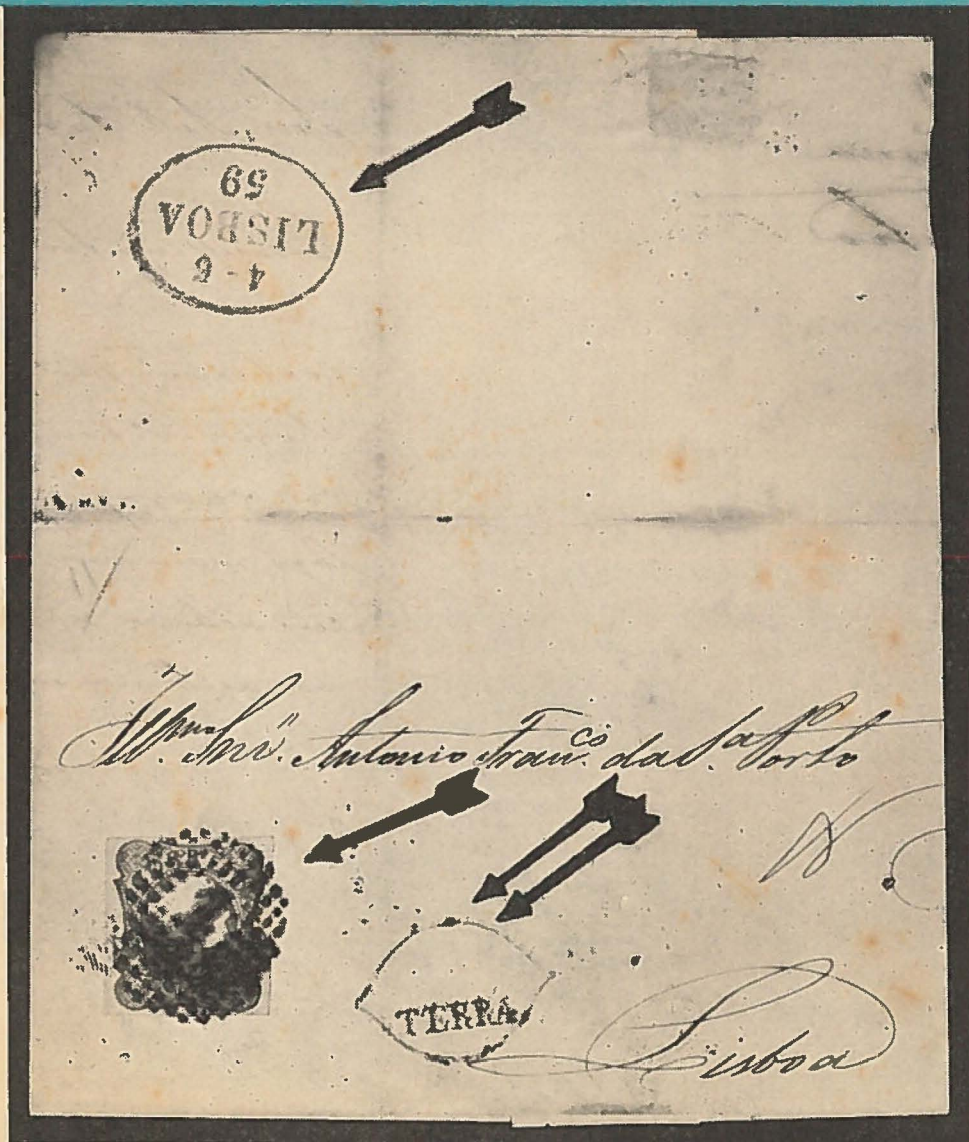 59
LISBOA
4-6
Illmo. Snr. Antonio Franco. da Sa. Porto
TERRA
Lisboa